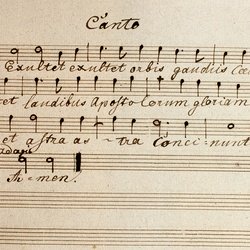 Canto
Exultet exultet orbis gaudiis Cæ
et laudibus Aposto lorum gloriam
et astra as - tra Conci - nunt
adagio
A - men.